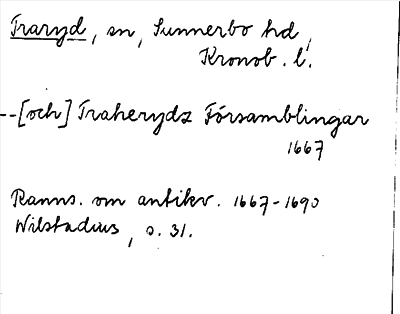 Traryd, sn, Sunnerbo hd,
Kronob. l.
--[och] Traherydz Församblingar
1667
Ranns. om antikv. 1667-1690
Wilstadius, s. 31.